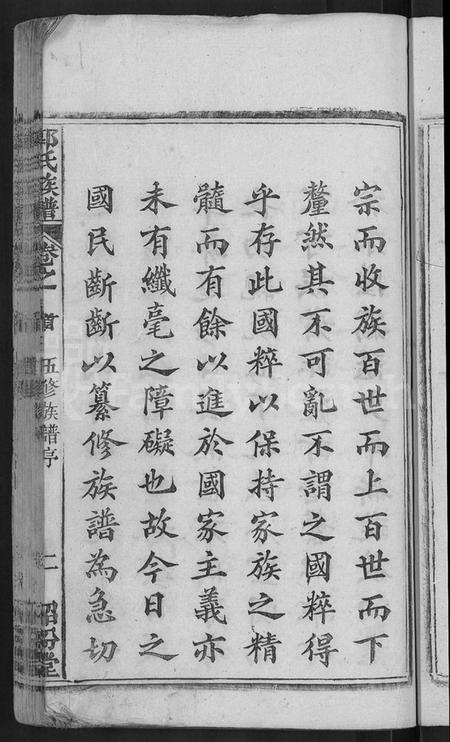 宗而收族百世而上百世而下
釐然其不可亂不謂之國粹得
乎存此國粹以保持家族之精
髓而有餘以進於國家主義亦
未有纖毫之障礙也故今日之
國民斷斷以纂修族譜為急切
氏族譜
卷之一
首
五修族譜序
二